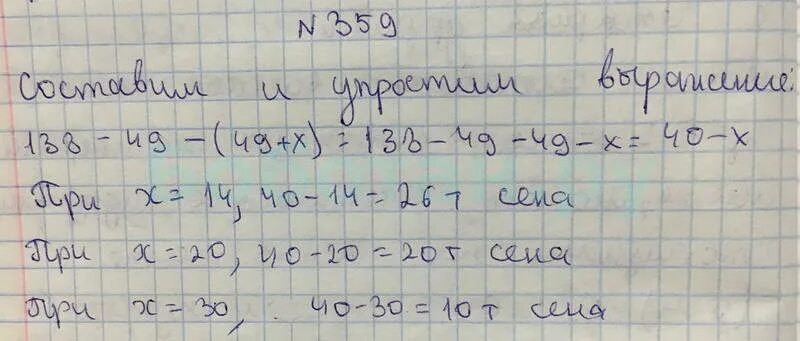 № 359
Составим и упростим выражение:
138 - 49 - (49+x) = 138 - 49 - 49 - x = 40 - x
При x = 14, 40 - 14 = 26 т сена
При x = 20, 40 - 20 = 20 т сена
При x = 30, 40 - 30 = 10 т сена